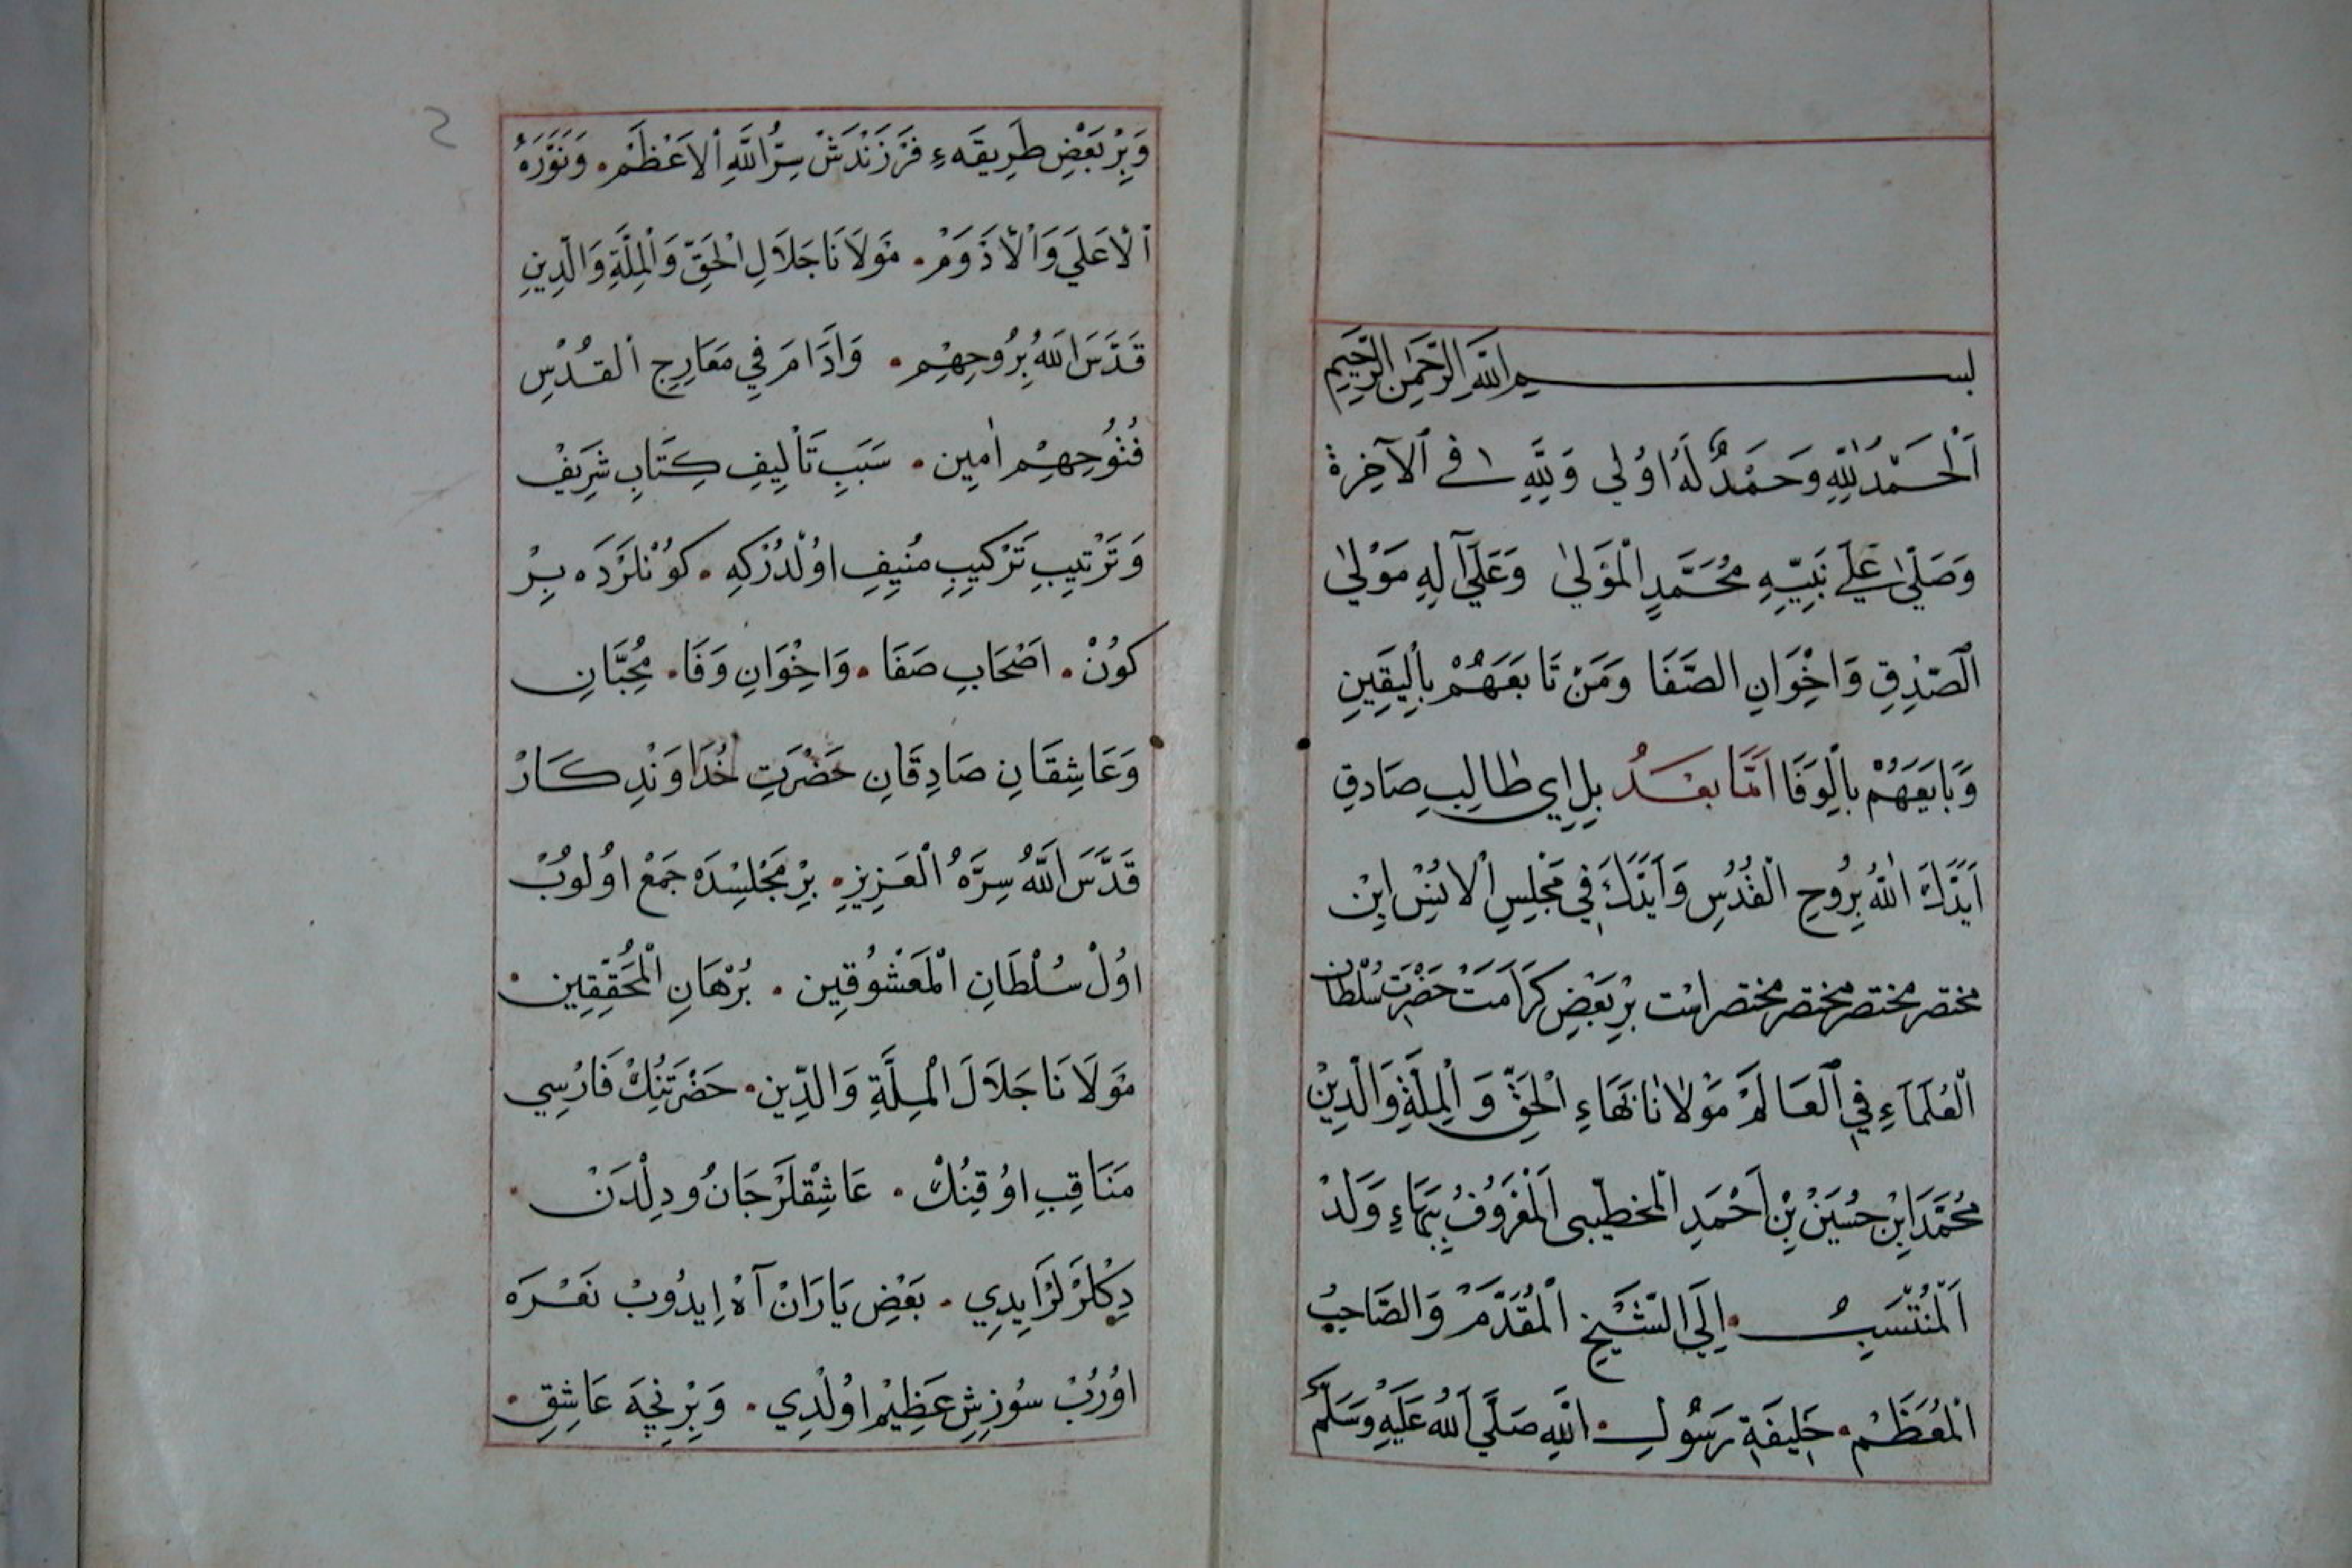 بسم الله الرحمن الرحيم
اَلْحَمْدُ لِلّٰهِ وَحَمْدٌ لَهُ اوُلي وَلِلَّهِ في ٱلآخِرة
وَصَلّىٰ عَلَے نَبِيِّهِ مُحَمَّدٍ الْمَوَلىٰ وَعَلَيٓ آلِهِ مَوْلىٰ
الصّدْقِ وَاخِْوَانِ الصَّفَا وَمَنْ تَابَعَهُمْ بِالْيَقِينِ
وَبَايَعَهُمْ بِالْوَفَا اَمَّا بَعْدُ بِل اِي طَالِبِ صَادِقِ
اَيَّدَكَ اللّٰهُ بِرُوحِ الْقُدُسِ وَاَيَّدَكَ فِي مَجْلِسِ الْاُنْسْ ايِنْ
مختصر مختصر مختصر مختصر است بِرْ بَعْضِ كَرَامَتْ حَضْرَتِ سُلْطَان
الْعُلَمَآءِ فِي الْعَالَمْ مَوْلَانَا بَهَاءِ الْحَقِّ وَالْمِلَّةِ وَالدِّينْ
مُحَمَّدَ ابِْنْ حُسَيَنْ بِنْ اَحْمَدِ الْخطيبى اَلْمَعْرَوُفُ بِبَهَاءِ وَلَدْ
اَلْمُنْتَسَبُِ اِلَي الشَّيْخِ الْمُقَدَّمْ وَالصَّاحِبُ
الْمُعَظَّمْ خَلِيفَة رَسُولِ اللهِ صَلَّي اَللّٰهُ عَلَيْهِ وَسَلَّمْ
وَبِرْ بَعْضِ طَرِيقَهءِ فَرْزَنْدَشْ سِرُّ اللَّهِ اْلاَعْظَمْ. وَنَوَّرَهُ
ٱلْاَعْلَي وَاْلْاَدْوَمْ. مَوْلَانَا جَلَالِ الْحَقِّ وَالْمِلَّةِ وَالّدِينِ
قَدَّسَ اللهُ بِرُوحِهِمْ. وَادَامَ فِي مَعَارِجِ الْقُدْسِ
فُتُوُحِهِمْ اٰمِين. سَبَبِ تَأْلِيفِ كِتَابِ شَرِيَفْ
وَتَرْتِيبِ تَرْكِيبِ مُنِيِفِ اوُلْدُرْكِه. كوُنْلَرْدَه بِرْ
كوُنْ. اصَْحَابِ صَفَا. وَاخِْوَانِ وَفَا. مُحِبَّانِ
وَعَاشِقَانِ صَادِقَانِ حَضْرَتِ خُدَاوَنْدِ كَارْ
قَدَّسَ اللَّهُ سِرَّهُ الْعَزِيزِ. بِرْ مَجْلِسْدَه جَمْع اوُلوُبْ
اوُلْ سُلْطَانِ الْمَعْشُوُقِين. بُرْهَانِ الْمُحَقِّقِين.
مَوْلَانَا جَلَالَ الْمِلَّةِ وَالدِّين. حَضْرَتِنُكْ فَارْسِي
مَنَاقِبِ اوُقِنُكْ. عَاشِقْلَرْ جَانُ و دِلْدَنْ.
دِكْلَرْلَرْ اِيدِي. بَعْضِ يَارَانْ آهْ اِيدُوبْ نَعْرَه
اوُرُبْ سُوزِشِ عَظِيْم اوُلْدِي. وَبِرْ نِچَه عَاشِقِ.